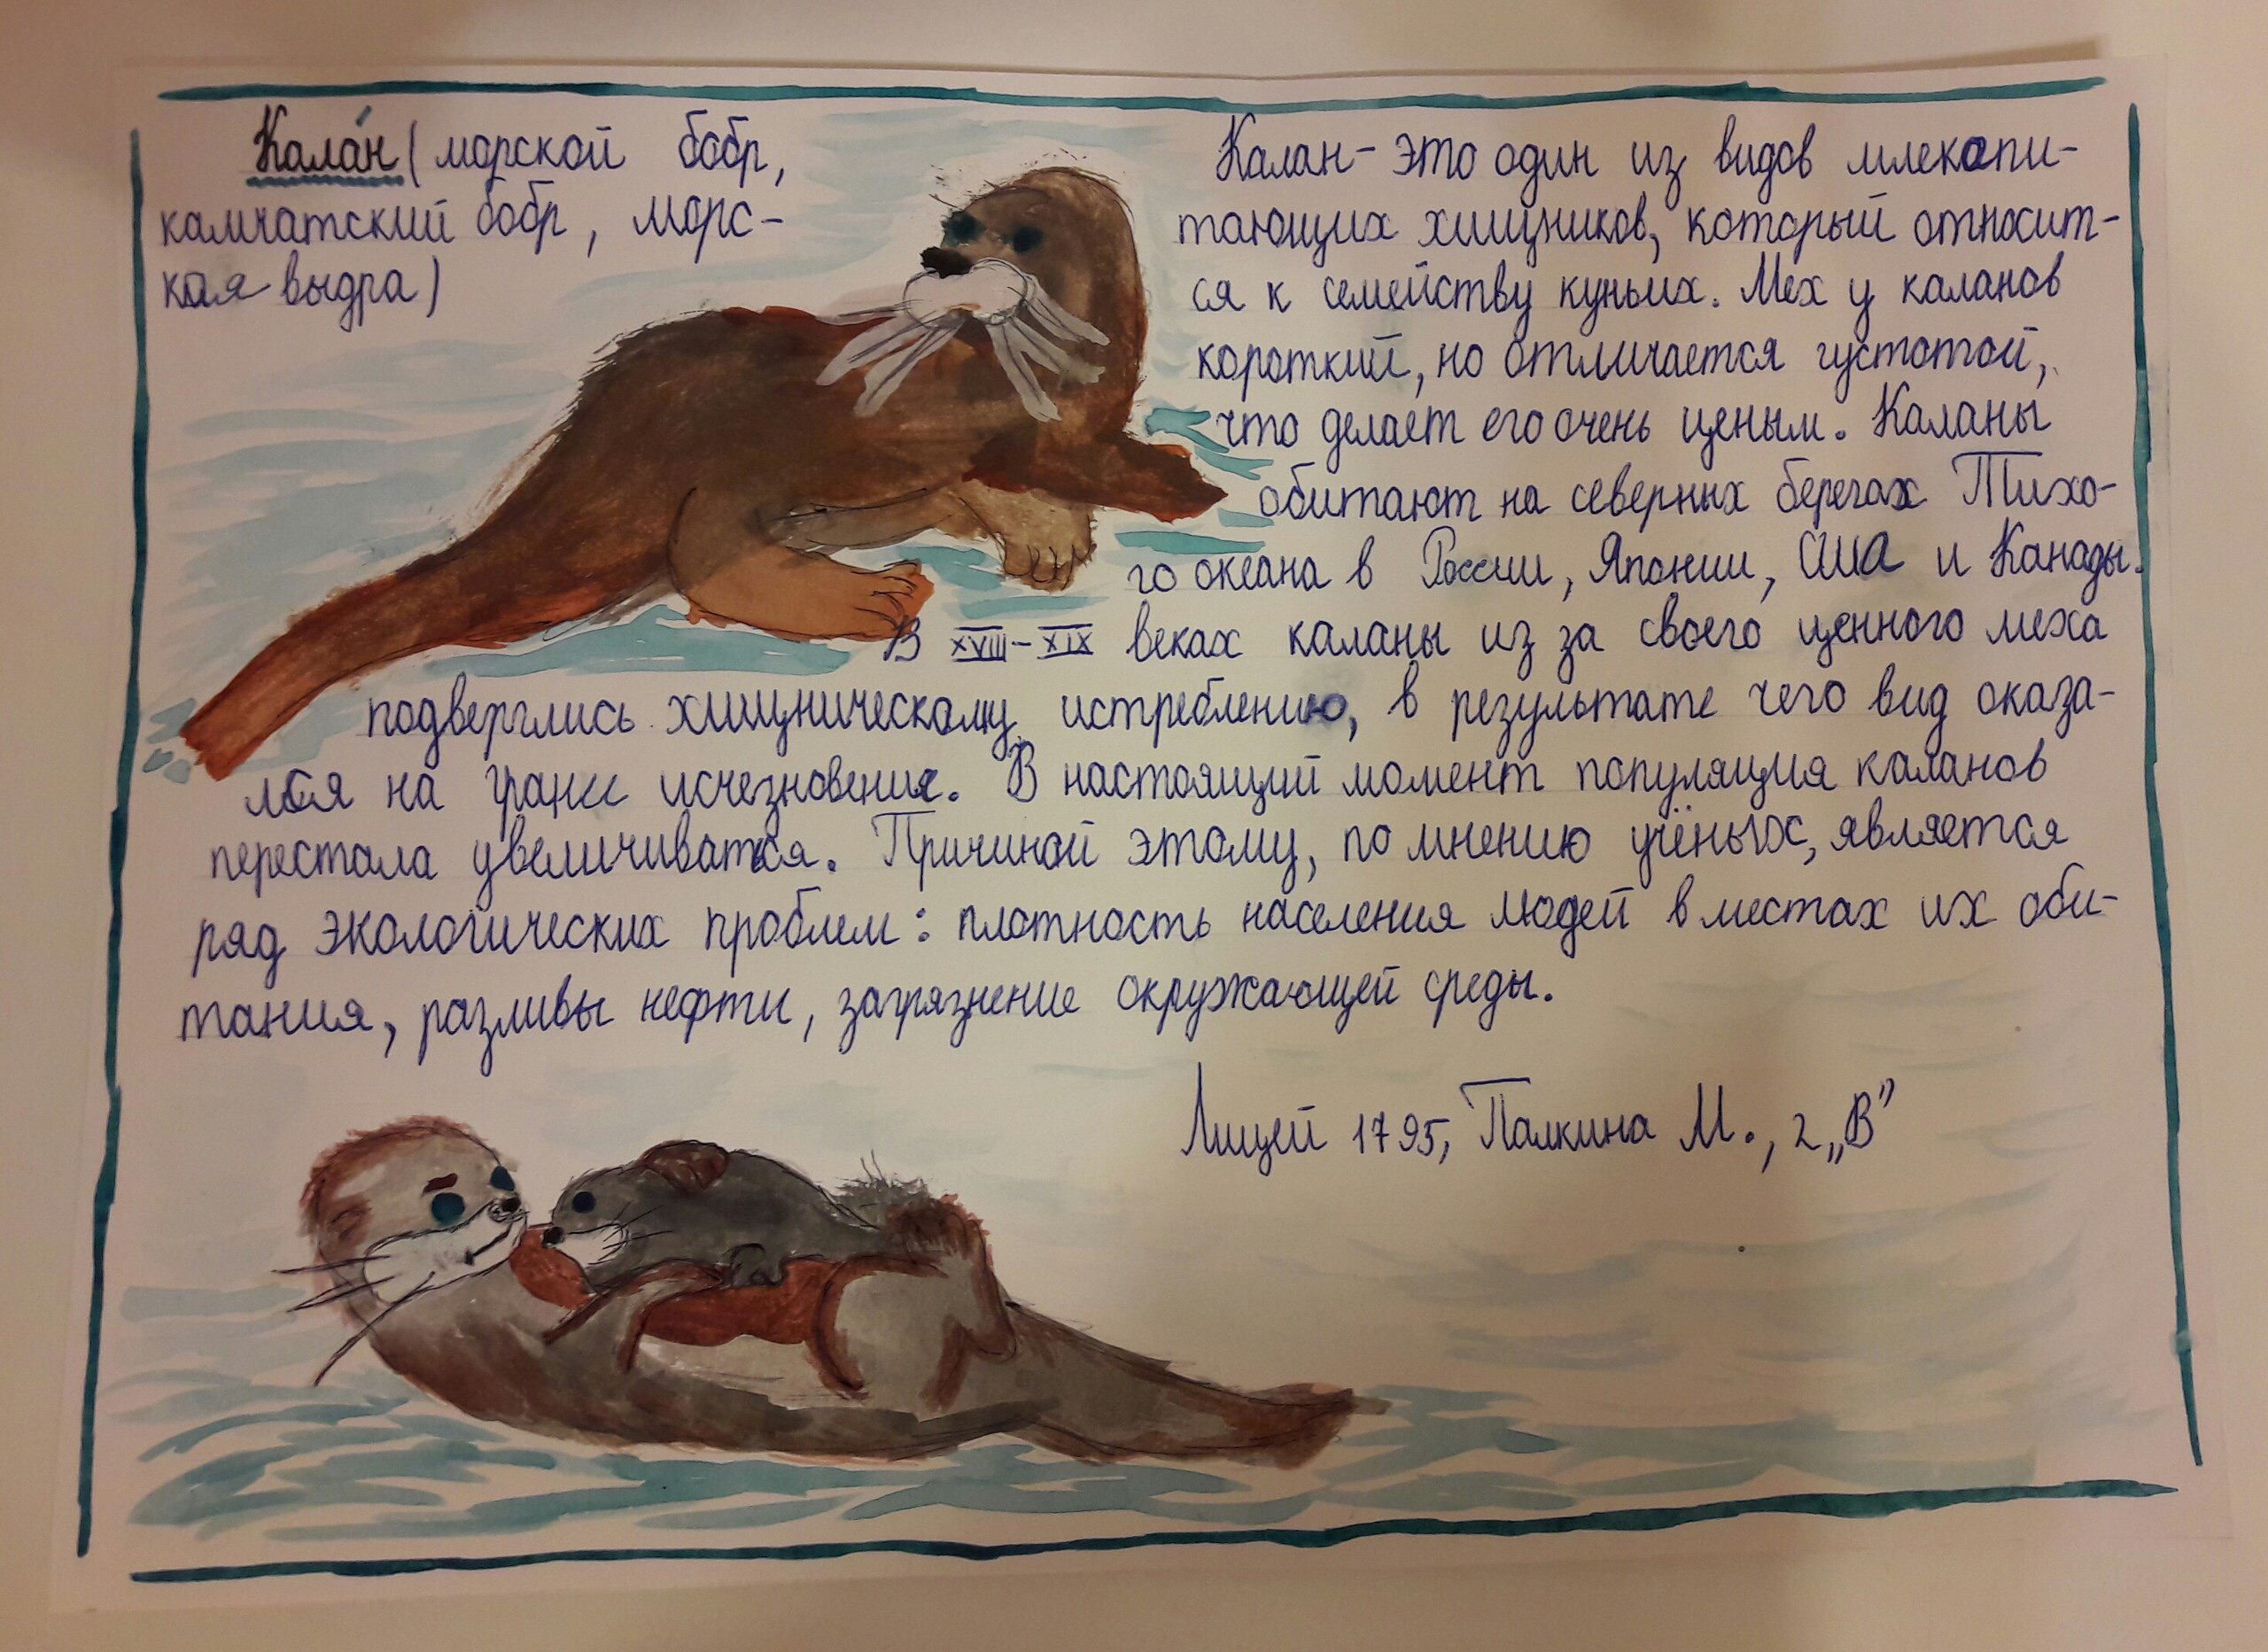 Кала́н (морской бобр,
камчатский бобр, морс-
кая выдра)
Калан - это один из видов млекопи-
тающих хищников, который относит-
ся к семейству куньих. Мех у каланов
короткий, но отличается густотой,
что делает его очень ценым. Каланы
обитают на северных берегах Тихо-
го океана в России, Японии, США и Канады.
В XVIII-XIX веках каланы из за своего ценного меха
подверглись хищническому истреблению, в результате чего вид оказа-
лся на грани исчезновения. В настоящий момент популяция каланов
перестала увеличиваться. Причиной этому, по мнению учёных, является
ряд экологических проблем: плотность населения людей в местах их оби-
тания, разливы нефти, загрязнение окружающей среды.
Лицей 1795, Палкина М., 2 „В"